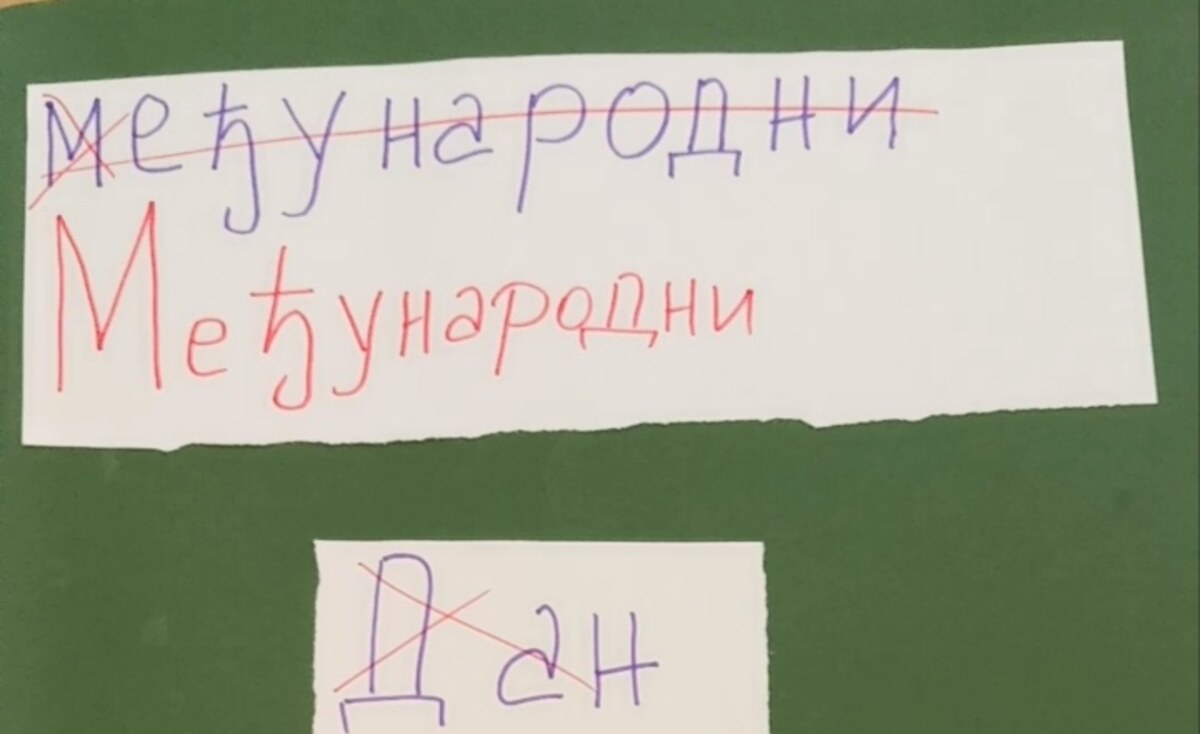 међународни
Међународни
Дан